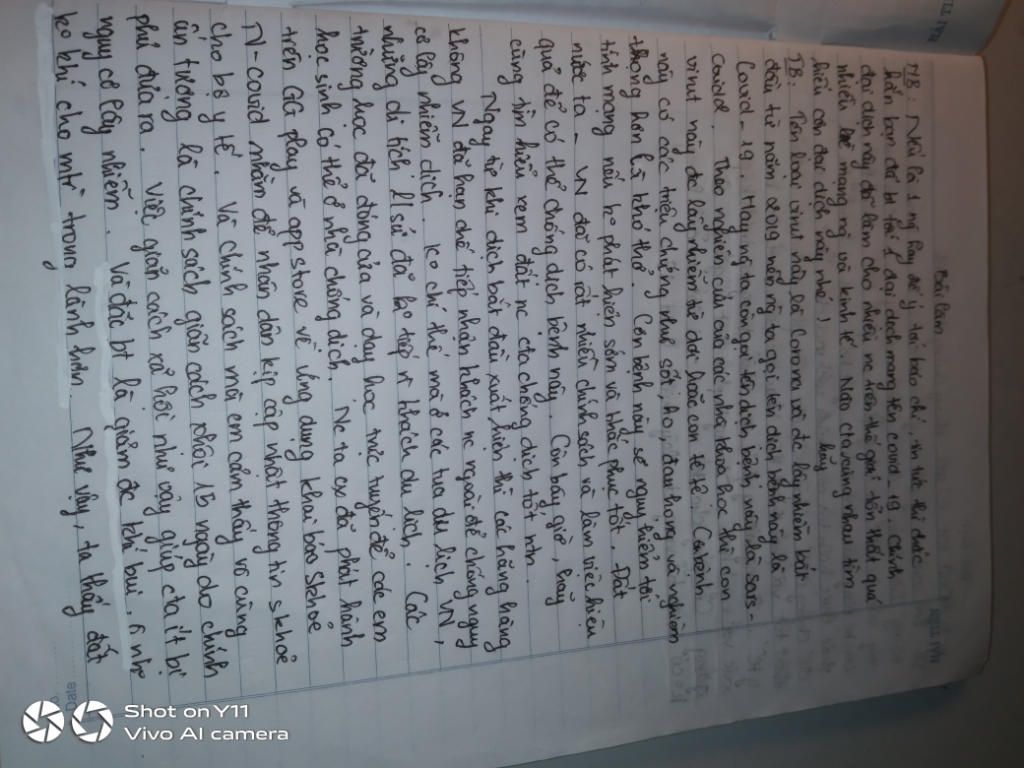 Bài làm
MB: Nói là 1 ng hay để ý tới báo chí, tin tức thì chắc
hẳn bạn đã bt tới 1 đại dịch mang tên covid-19. Chính
đại dịch này đã làm cho nhiều nc trên thế giới tổn thất quá
nhiều về mạng ng và kinh tế. Nào cta cùng nhau tìm
hiểu căn đại dịch này nhé!
TB: Tên loại virut này là Corona và đc lây nhiễm bắt
đầu từ năm 2019 nên ng ta gọi tên dịch bệnh này là
Covid-19. Hay ng ta còn gọi tên dịch bệnh này là sars-
CoV2. Theo nghiên cứu của các nhà khoa học thì con
virut này dễ lây nhiễm từ dơi hoặc con tê tê. Cơ bệnh
này có các triệu chứng như sốt, ho, đau họng và nghiêm
trọng hơn là khó thở. Cơn bệnh này sẽ nguy hiểm tới
tính mạng nếu ko phát hiện sớm và khắc phục tốt. Đất
nước ta - VN đã có rất nhiều chính sách và làm việc hiệu
quả để có thể chống dịch bệnh này. Còn bây giờ, hãy
cùng tìm hiểu xem đất nc cta chống dịch tốt ntn.
Ngay từ khi dịch bắt đầu xuất hiện thì các hãng hàng
không VN đã hạn chế tiếp nhận khách nc ngoài để chống nguy
cơ lây nhiễm dịch. Ko chỉ thế mà ở các tua du lịch VN,
những di tích l/sử đã ko tiếp n khách du lịch. Các
trường học đã đóng cửa và dạy học trực tuyến để các em
học sinh có thể ở nhà chống dịch. Nc ta cx đã phát hành
trên GG play và app store về ứng dụng khai báo skhoẻ
N-covid nhằm để nhân dân kịp cập nhật thông tin s khoẻ
cho bộ y tế. Và chính sách mà em cảm thấy vô cùng
ấn tượng là chính sách giãn cách phải 15 ngày do chính
phủ đưa ra. Việc giãn cách xã hội như vậy giúp cta ít bị
nguy cơ lây nhiễm. Và đặc bt là giảm đc khí bụi, ô nhr
ko khí cho mtr trong lành hơn. Như vậy, ta thấy đất
Date
Shot on Y11
Vivo AI camera